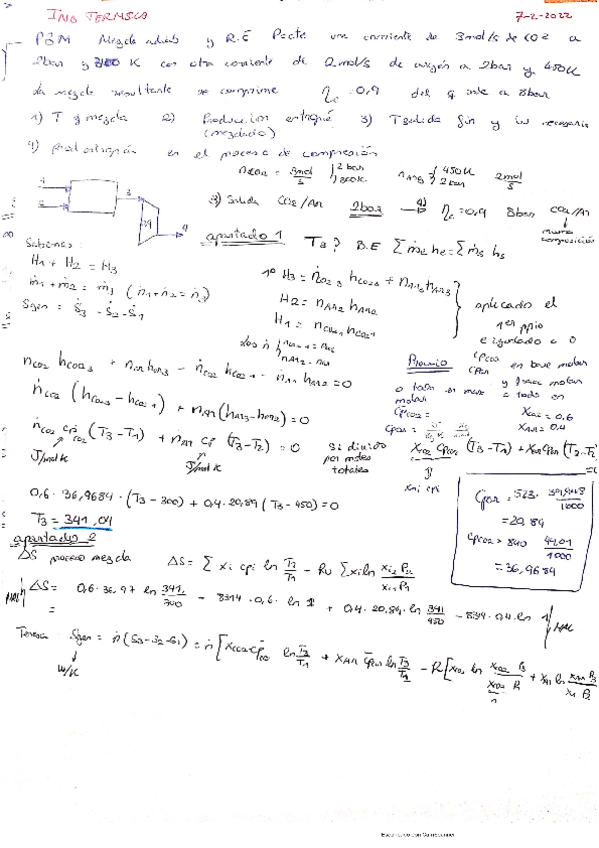 ING TERMICA 7-2-2022
PBM Mezcla adiab y R.E Parte una corriente de 3mol/s de CO2 a
2bar y 300 K con otra corriente de 2mol/s de argón a 2bar y 450K
la mezcla resultante se comprime ηc = 0,9 del q sale a 8bar
1) T q mezcla 2) Produccion entropia 3) T salida fin y w necesaria
(mezclado)
4) prod entropia en el proceso de compresión
nCO2 = 3mol/s 2 bar 300K nAr2 450K 2bar 2mol/s
3) Salida CO2/Ar 2bar ηc = 0,9 8bar CO2/Ar
misma composición
1 2 3 4
apartado 1 T3? B.E Σ ṁe he = Σ ṁs hs
Sabemos:
H1 + H2 = H3
ṁ1 + ṁ2 = ṁ3 (ṅ1 + ṅ2 = ṅ3)
Sgen = Ṡ3 - Ṡ2 - Ṡ1
1º H3 = ṅCO2 3 hCO2 3 + ṅAr3 hAr3
H2 = nAr2 hAr2
H1 = nCO2 1 hCO2 1
aplicado el
1er ppio
e igualado a 0
nCO2 hCO2 3 + nAr hAr3 - ṅCO2 hCO2 1 - ṅAr hAr2 = 0
ṅCO2 (hCO2 3 - hCO2 1) + nAr (hAr3 - hAr2) = 0
ṅCO2 cp CO2 (T3 - T1) + ṅAr cp (T3 - T2) = 0
J/mol K J/mol K
Si divido por moles totales
CpCO2 CpAr en base molar
o todo en masa y fracc molar
molar o todo en
XCO2 = 0,6
XAr = 0,4
XCO2 CpCO2 (T3 - T1) + XAr CpAr (T3 - T2) = 0
xi cpi
0,6 · 36,9684 · (T3 - 300) + 0,4 · 20,89 (T3 - 450) = 0
T3 = 341,04
CpAr = 523 · 39,948/1000
= 20,89
CpCO2 = 840 44,01/1000
= 36,9684
apartado 2
ΔS proceso mezcla ΔS = Σ xi cpi ln T2/T1 - Ru Σ xi ln xi2 P2/xi1 P1
ΔS = 0,6 · 36,97 ln 341/300 - 8314 · 0,6 · ln 1 + 0,4 · 20,89 · ln 341/450 - 8,314 · 0,4 · ln 1
Teneria Sgen = ṅ (S3 - S2 - S1) = ṅ [xCO2 cpCO2 ln T3/T1 + XAr CpAr ln T3/T1 - R [xCO2 ln xCO2 P3/xCO2 P1 + xAr ln xAr P3/x1 P2
W/K
Escaneado con CamScanner